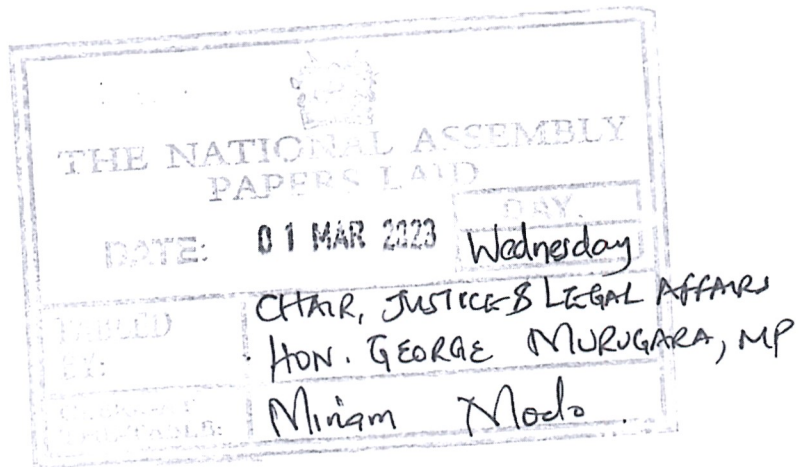 THE NATIONAL ASSEMBLY
PAPERS LAID
DATE: 01 MAR 2023
DAY.
Wednesday
TABLED
BY:
CHAIR, JUSTICE & LEGAL AFFAIRS
HON. GEORGE MURUGARA, MP
Miriam Modo